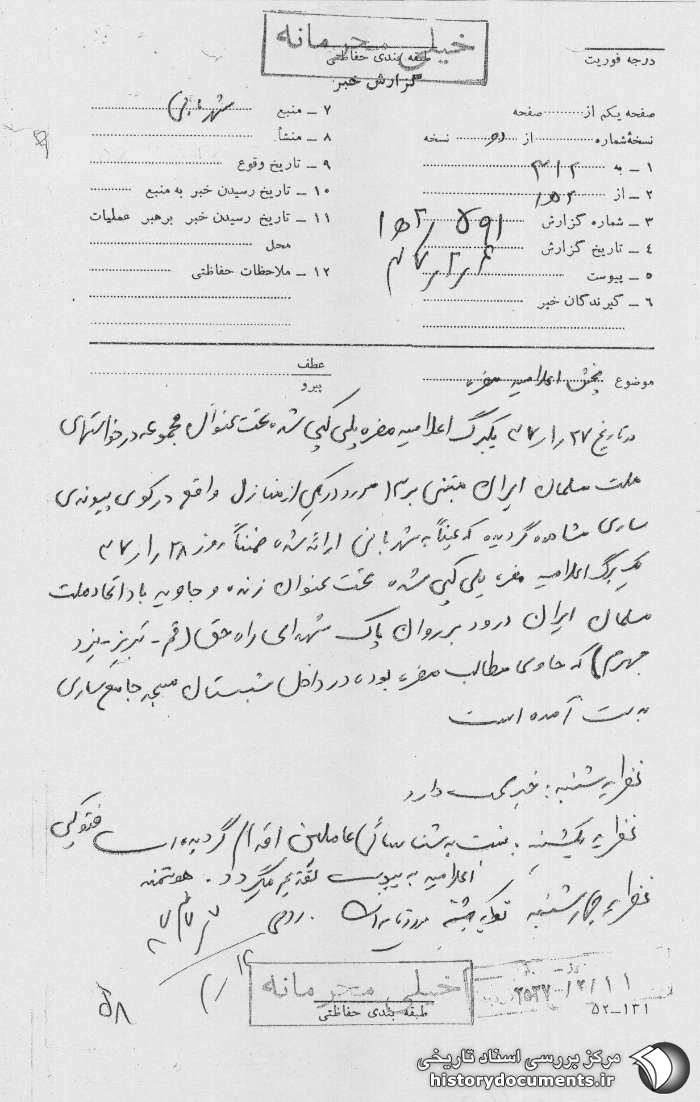 خیلی محرمانه
طبقه بندی حفاظتی
گزارش خبر
درجه فوریت
صفحه یکم از صفحه
نسخهٔ شماره از نسخه
۱ ـ به ۳۱۲
۲ ـ از ۱ه۲
۳ ـ شماره گزارش ۱ه۲/۵۹۱
۴ ـ تاریخ گزارش ۳۷/۲/۴
۵ ـ پیوست
۶ ـ گیرندگان خبر
۷ ـ منبع
۸ ـ منشأ
۹ ـ تاریخ وقوع
۱۰ ـ تاریخ رسیدن خبر به منبع
۱۱ ـ تاریخ رسیدن خبر برهبر عملیات
محل
۱۲ ـ ملاحظات حفاظتی
موضوع پخش اعلامیه مضره
عطف
پیرو
در تاریخ ۲۷/۱/۳۷ یکبرگ اعلامیه مضره پلی کپی شده تحت عنوان مجموعه درخواستهای
ملت مسلمان ایران مبتنی بر ۱۳ مورد در یکی از منازل واقع در کوی پیوندی
ساری مشاهده گردیده که عیناً به شهربانی ارائه شده ضمناً روز ۲۸/۱/۳۷
یک برگ اعلامیه مضره پلی کپی شده تحت عنوان زنده و جاوید باد اتحاد ملت
مسلمان ایران درود بر روان پاک شهدای راه حق (قم - تبریز - یزد
جهرم) که حاوی مطالب مضره بوده در داخل شبستان مسجد جامع ساری
بدست آمده است
نظریه شنبه : خبر صحت دارد
نظریه یکشنبه : نسبت به شناسائی عاملین اقدام گردیده است فتوکپی
اعلامیه به پیوست تقدیم میگردد .
نظریه چهارشنبه
خیلی محرمانه
طبقه بندی حفاظتی
۲۵۳۷/۲/۱۱
۵۲-۱۳۱
۵۸
مرکز بررسی اسناد تاریخی
historydocuments.ir